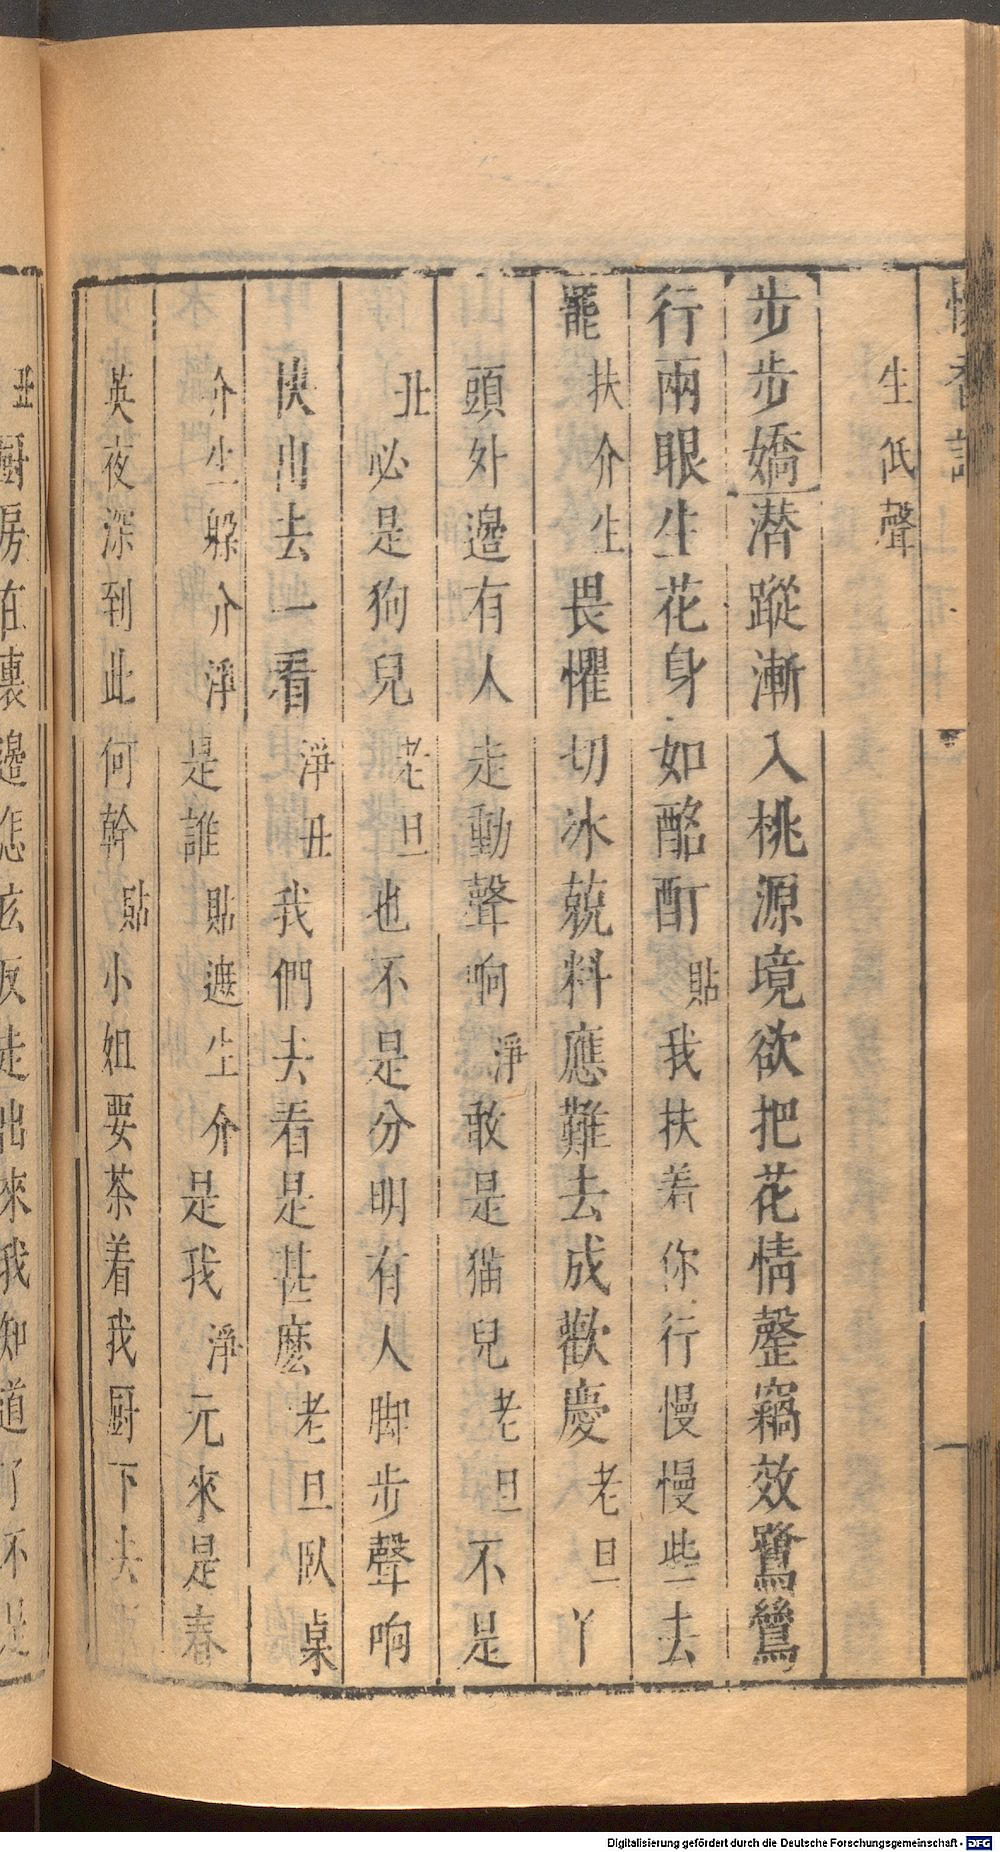 懷香記
生低聲
步步嬌潜蹤漸入桃源境欲把花情罄竊效鷺鶯
行兩眼生花身如酩酊貼我扶着你行慢慢些去
罷扶介生畏懼切冰兢料應難去成歡慶老旦丫
頭外邊有人走動聲响淨敢是猫兒老旦不是
丑必是狗兒老旦也不是分明有人脚步聲响
快出去一看淨丑我們去看是甚麽老旦臥桌
介生躱介淨是誰貼遮生介是我淨元來是春
英夜深到此何幹貼小姐要茶着我厨下去
丑厨房在裏邊怎麽反走出來我知道了不是
Digitalisierung gefördert durch die Deutsche Forschungsgemeinschaft - DFG